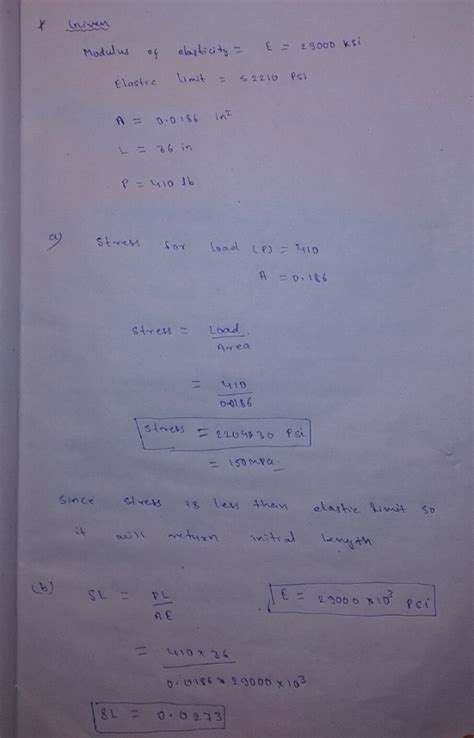 * Given
Modulus of elasticity = E = 29000 ksi
Elastic limit = 52210 Psi
A = 0.0186 in²
L = 36 in
P = 410 lb
a) Stress for load (P) = 410
A = 0.186
Stress = Load
Area
= 410
0.0186
Stress = 22043.0 Psi
= 150 MPa
Since stress is less then elastic limit so
it will return initial length
(b) δL = PL
AE
E = 29000 × 10³ Psi
= 410 × 36
0.0186 × 29000 × 10³
δL = 0.0273